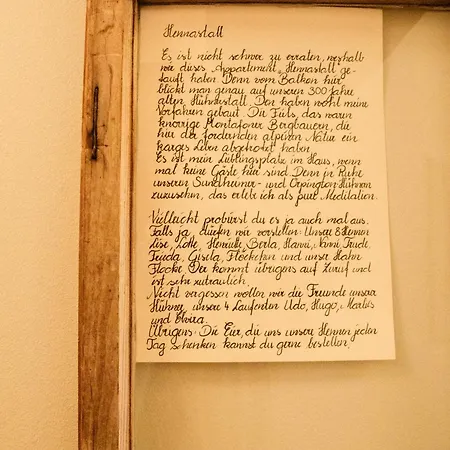 Hennastall
Es ist nicht schwer zu erraten, weshalb
wir dieses „Appartement" Hennastall ge-
tauft haben. Denn vom Balkon hier
blickt man genau auf unseren 300 Jahre
alten Hühnerstall. Den haben wohl meine
Vorfahren gebaut. Die Fiels, das waren
knorrige Montafoner Bergbauern, die
hier der fordernden alpinen Natur ein
karges Leben abgetrotzt haben.
Es ist mein Lieblingsplatz im Haus, wenn
mal keine Gäste hier sind. Denn in Ruhe
unseren Sundheimer- und Orpington-Hühnern
zuzusehen, das erlebe ich als pure Meditation.
Vielleicht probierst du es ja auch mal aus.
Falls ja, dürfen wir vorstellen: Unsere 8 Hennen
Lise, Lotte, Henriette, Berta, Hanni, Nanni, Trude,
Frieda, Gisela, Flöckchen und unser Hahn
Flocke. Der kommt übrigens auf Zuruf und
ist sehr zutraulich.
Nicht vergessen wollen wir die Freunde unserer
Hühner, unsere 4 Laufenten Udo, Hugo,
und Elvira.
Übrigens: Die Eier, die uns unsere Hennen jeden
Tag schenken kannst du gerne bestellen.